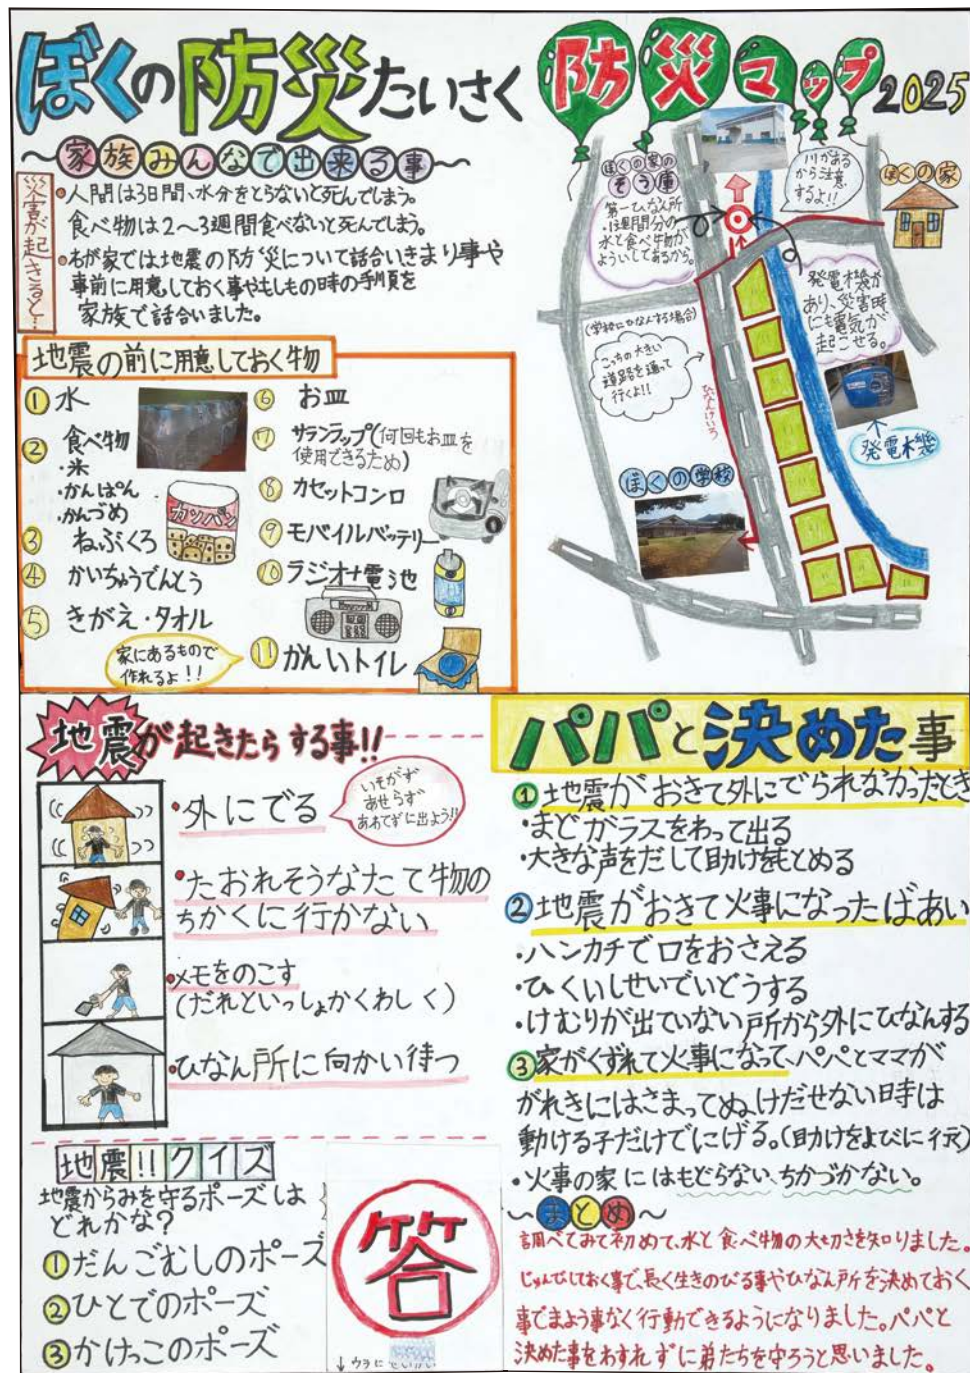 ぼくの防災たいさく
防災マップ2025
〜家族みんなで出来る事〜
災害が起きると…
・人間は3日間、水分をとらないと死んでしまう。
食べ物は2〜3週間食べないと死んでしまう。
・わが家では地震の防災について話合いきまり事や
事前に用意しておく事やもしもの時の手順を
家族で話合いました。
地震の前に用意しておく物
①水
②食べ物
・米
・かんぱん
・かんづめ
カンパン
③ねぶくろ
④かいちゅうでんとう
⑤きがえ・タオル
⑥お皿
⑦サランラップ(何回もお皿を
使用できるため)
⑧カセットコンロ
⑨モバイルバッテリー
⑩ラジオ+電池
⑪かんいトイレ
家にあるもので
作れるよ!!
ぼくの家の
そう庫
第一ひなん所
・1週間分の
水と食べ物が
よういしてあるから。
川がある
から注意
するよ!!
ぼくの家
発電機が
あり、災害時
にも電気が
起こせる。
発電機
(学校にひなんする場合)
こっちの大きい
道路を通って
行くよ!!
ひなんけいろ
ぼくの学校
地震が起きたらする事!!
・外にでる
いそがず
あせらず
あわてずに出よう!!
・たおれそうなたて物の
ちかくに行かない
・メモをのこす
(だれといっしょかくわしく)
・ひなん所に向かい待つ
地震!!クイズ
地震からみを守るポーズは
どれかな?
①だんごむしのポーズ
②ひとでのポーズ
③かけっこのポーズ
答
↓ウラに
パパと決めた事
①地震がおきて外にでられなかったとき
・まどガラスをわって出る
・大きな声をだして助けをもとめる
②地震がおきて火事になったばあい
・ハンカチで口をおさえる
・ひくいしせいでいどうする
・けむりが出ていない所から外にひなんする
③家がくずれて火事になって、パパとママが
がれきにはさまってぬけだせない時は
動ける子だけでにげる。(助けをよびに行く)
・火事の家にはもどらない、ちかづかない。
〜まとめ〜
調べてみて初めて、水と食べ物の大切さを知りました。
じゅんびしておく事で、長く生きのびる事やひなん所を決めておく
事でまよう事なく行動できるようになりました。パパと
決めた事をわすれずに弟たちを守ろうと思いました。